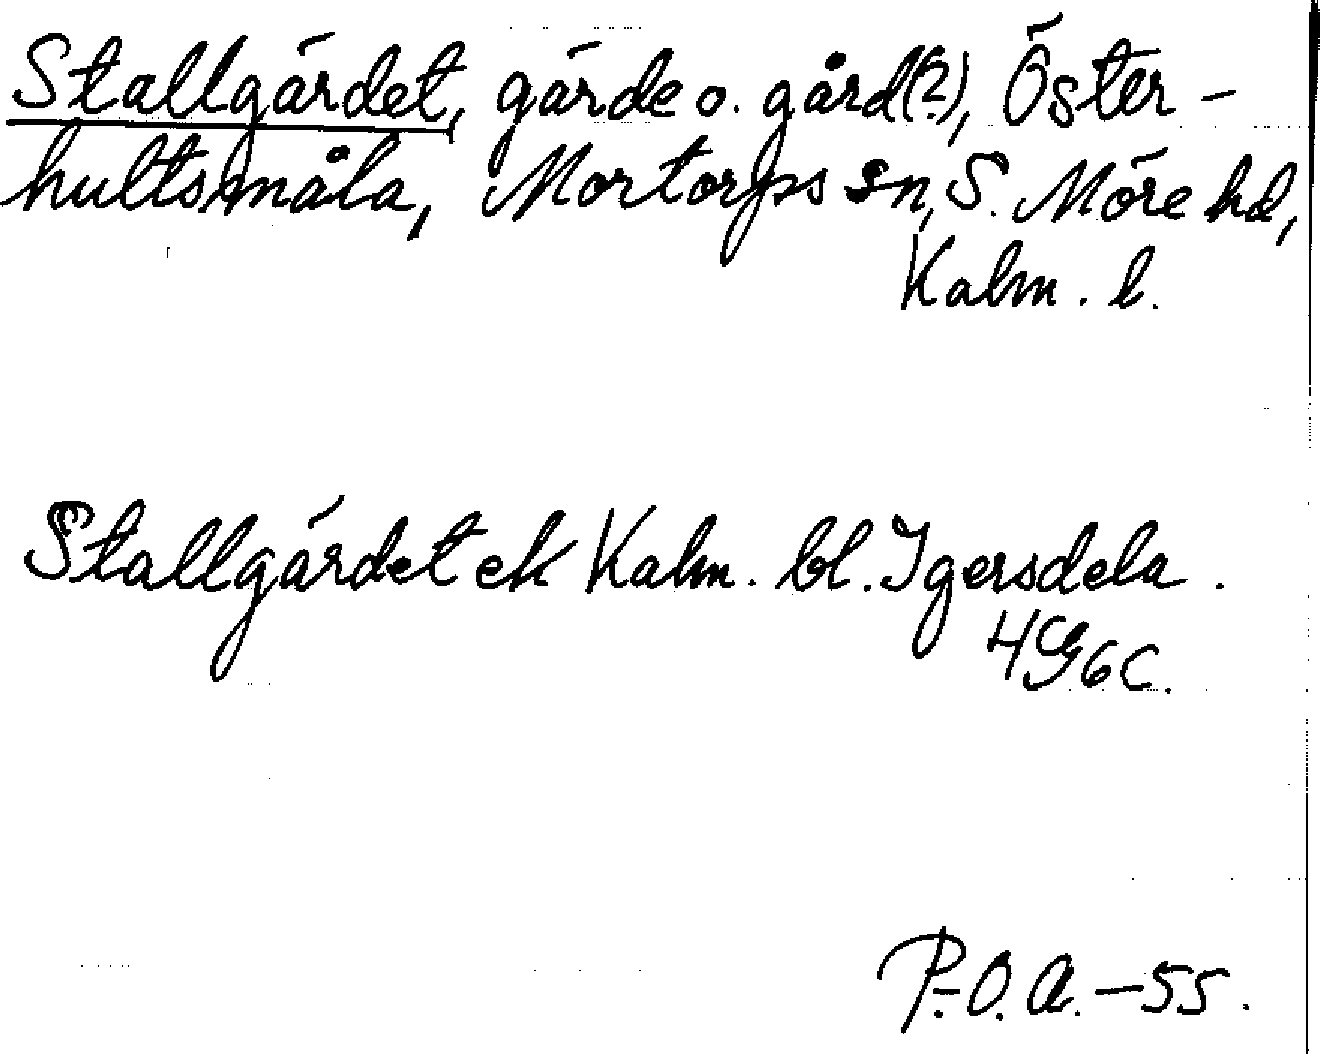 Stallgärdet, gärde o. gård(?), Öster-
hultsmåla, Mortorps sn, S. Möre hd,
Kalm. l.
Stallgärdet ek Kalm. bl. Igersdela.
4G6c.
P.-O. A. -55.